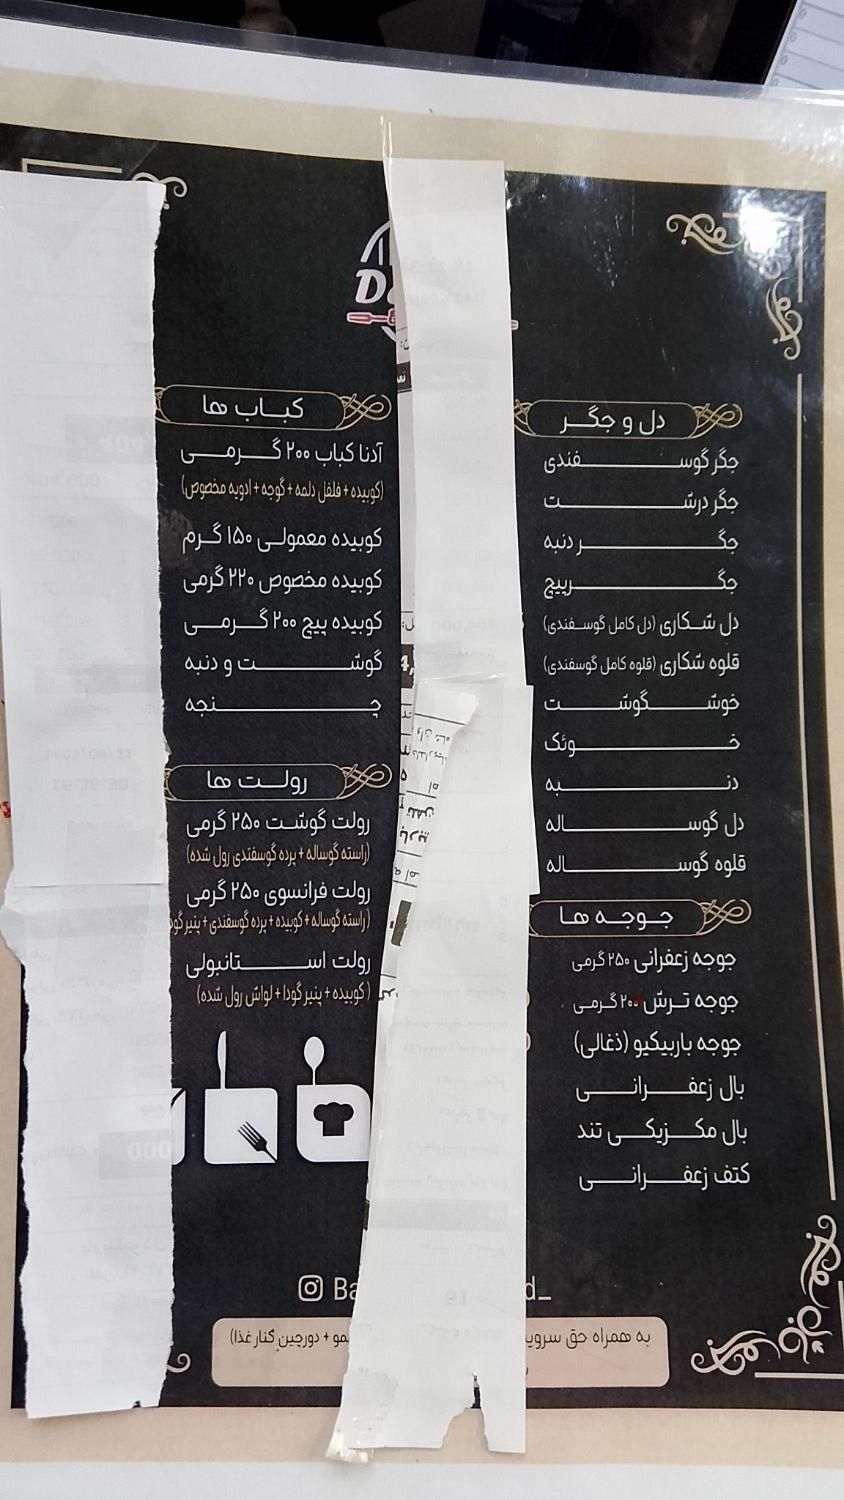 De
دل و جگر
جگر گوسفندی
جگر درشت
جگر دنبه
جگرپیچ
دل شکاری (دل کامل گوسفندی)
قلوه شکاری (قلوه کامل گوسفندی)
خوشگوشت
خوئک
دنبه
دل گوساله
قلوه گوساله
جوجه ها
جوجه زعفرانی ۲۵۰ گرمی
جوجه ترش ۲۰۰ گرمی
جوجه باربیکیو (ذغالی)
بال زعفرانی
بال مکزیکی تند
کتف زعفرانی
کباب ها
آدنا کباب ۲۰۰ گرمی
(کوبیده + فلفل دلمه + گوجه + ادویه مخصوص)
کوبیده معمولی ۱۵۰ گرم
کوبیده مخصوص ۲۲۰ گرمی
کوبیده پیچ ۲۰۰ گرمی
گوشت و دنبه
چنجه
رولت ها
رولت گوشت ۲۵۰ گرمی
(راسته گوساله + پرده گوسفندی رول شده)
رولت فرانسوی ۲۵۰ گرمی
(راسته گوساله + کوبیده + پرده گوسفندی + پنیر گود
رولت استانبولی
(کوبیده + پنیر گودا + لواش رول شده)
Ba d_
به همراه حق سرویس یمو + دورچین کنار غذا)